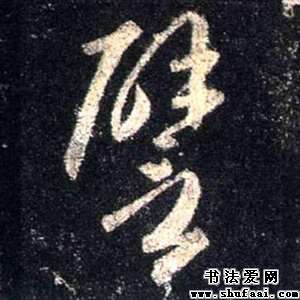 譬
书法爱网
www.shufaai.com